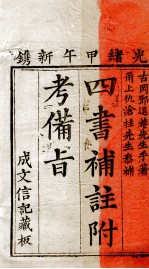 光緒甲午新鐫
古岡鄧退菴先生手著
甬上仇滄柱先生參補
四書補註附
考備旨
成文信記藏板